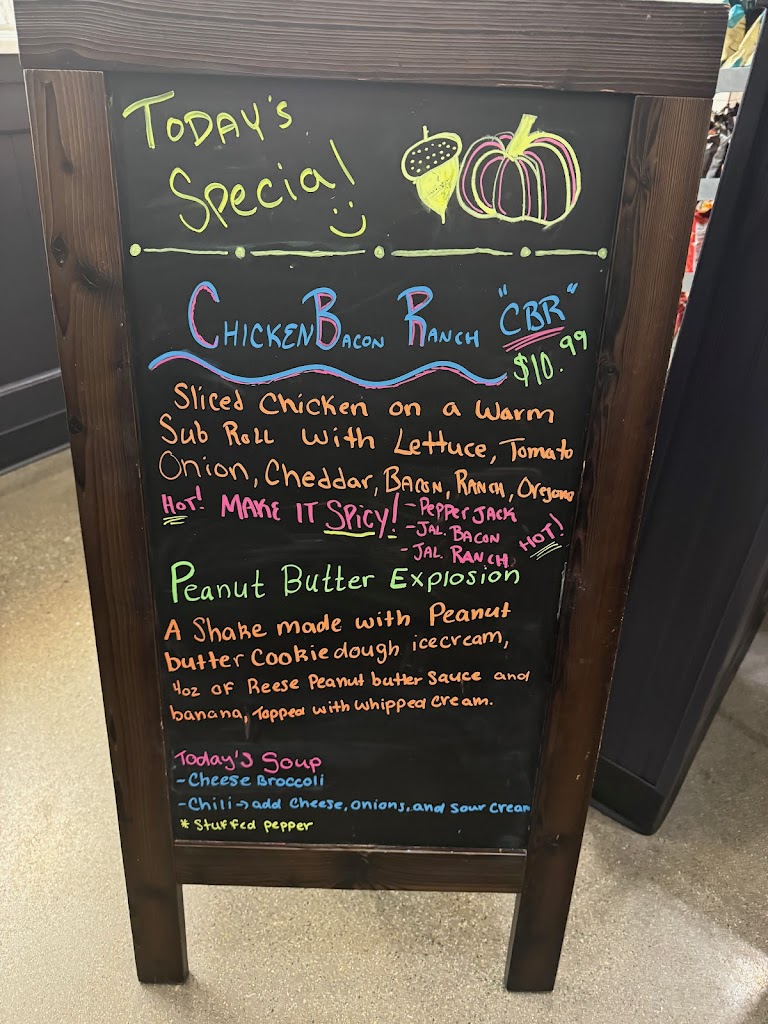 TODAY'S
Special
Chicken Bacon Ranch "CBR"
$10.99
Sliced Chicken on a Warm
Sub Roll with Lettuce, Tomato
Onion, Cheddar, Bacon, Ranch, Oregano
HOT! MAKE IT SPICY! - PEPPER JACK
- JAL. BACON
- JAL. RANCH HOT!
Peanut Butter Explosion
A Shake made with Peanut
butter Cookie dough icecream,
4oz of Reese Peanut butter Sauce and
banana, Topped with whipped cream.
Today's Soup
- Cheese Broccoli
- Chili → add Cheese, onions, and sour cream
* Stuffed pepper